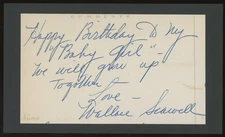 Happy Birthday to my
"Baby Girl" -
We will grow up
Together -
Love -
Wallace Seawell